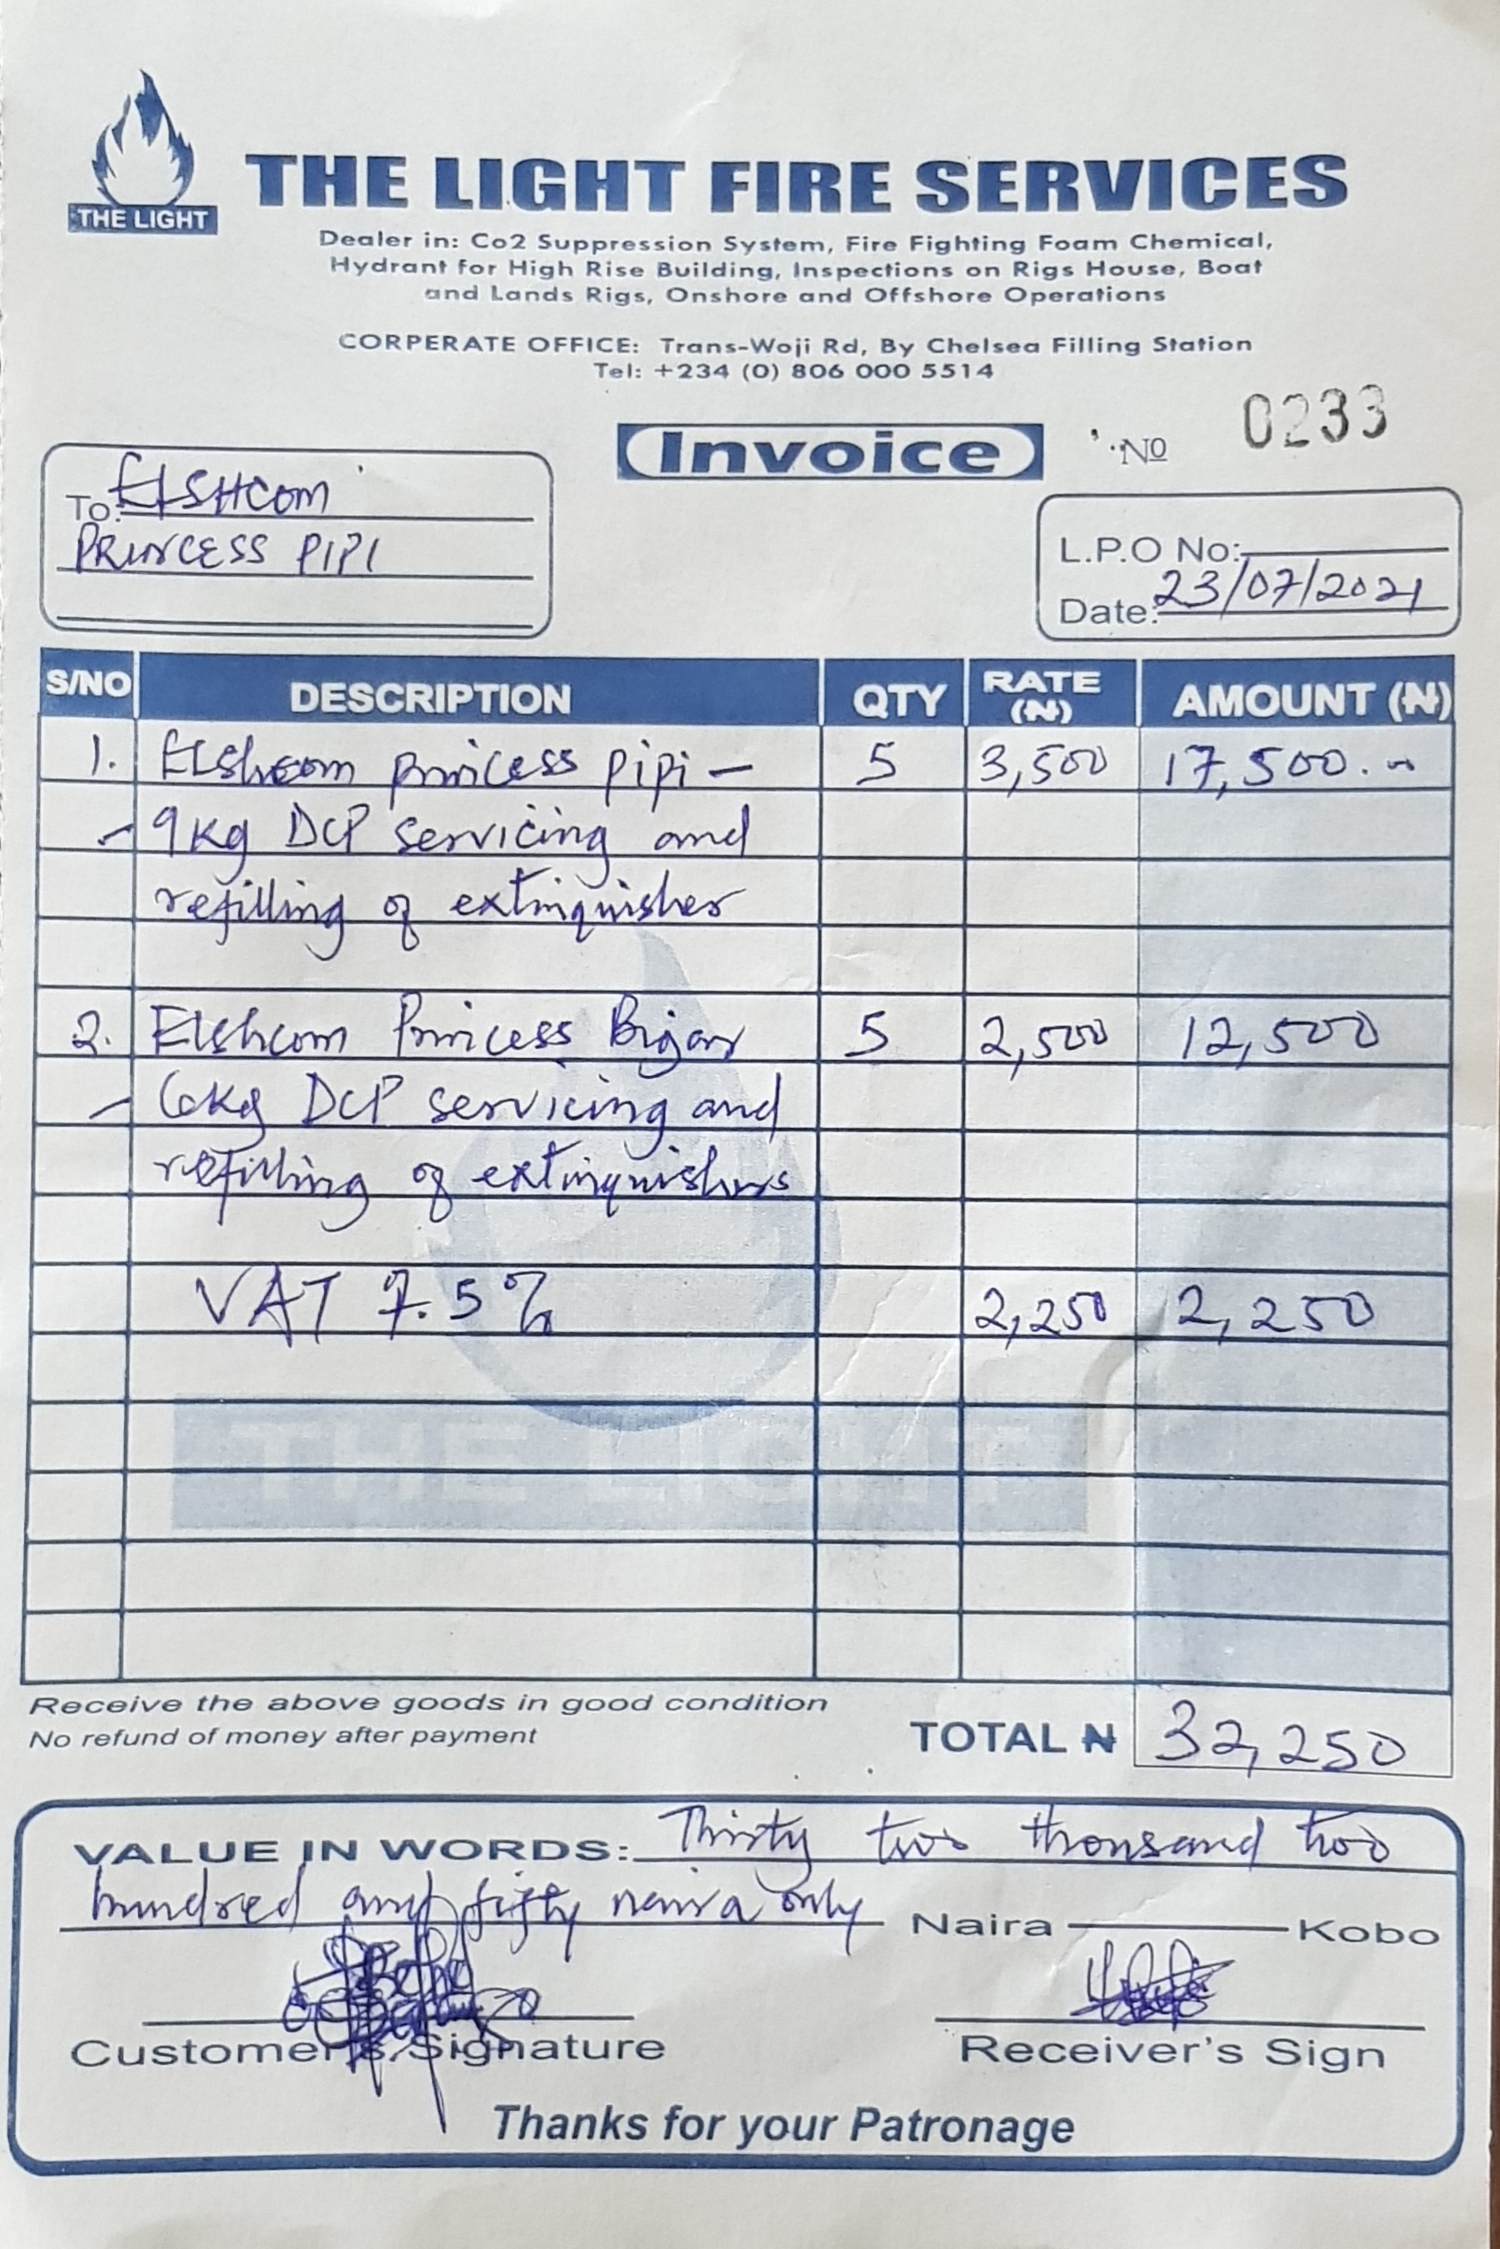 THE LIGHT
THE LIGHT FIRE SERVICES
Dealer in: Co2 Suppression System, Fire Fighting Foam Chemical,
Hydrant for High Rise Building, Inspections on Rigs House, Boat
and Lands Rigs, Onshore and Offshore Operations
CORPERATE OFFICE: Trans-Woji Rd, By Chelsea Filling Station
Tel: +234 (0) 806 000 5514
Invoice
No 0233
To: Elshcom
PRINCESS PIPI
L.P.O No:
Date: 23/07/2021
S/NO DESCRIPTION QTY RATE (₦) AMOUNT (₦)
1. Elshcom princess pipi - 5 3,500 17,500.
- 9kg DCP servicing and
refilling of extinguisher
2. Elshcom Princess 5 2,500 12,500
- 6kg DCP servicing and
refilling of extinguishers
VAT 7.5% 2,250 2,250
THE LIGHT
Receive the above goods in good condition
No refund of money after payment
TOTAL ₦ 32,250
VALUE IN WORDS: Thirty two thousand two
hundred and fifty naira only Naira Kobo
Customer's Signature Receiver's Sign
Thanks for your Patronage